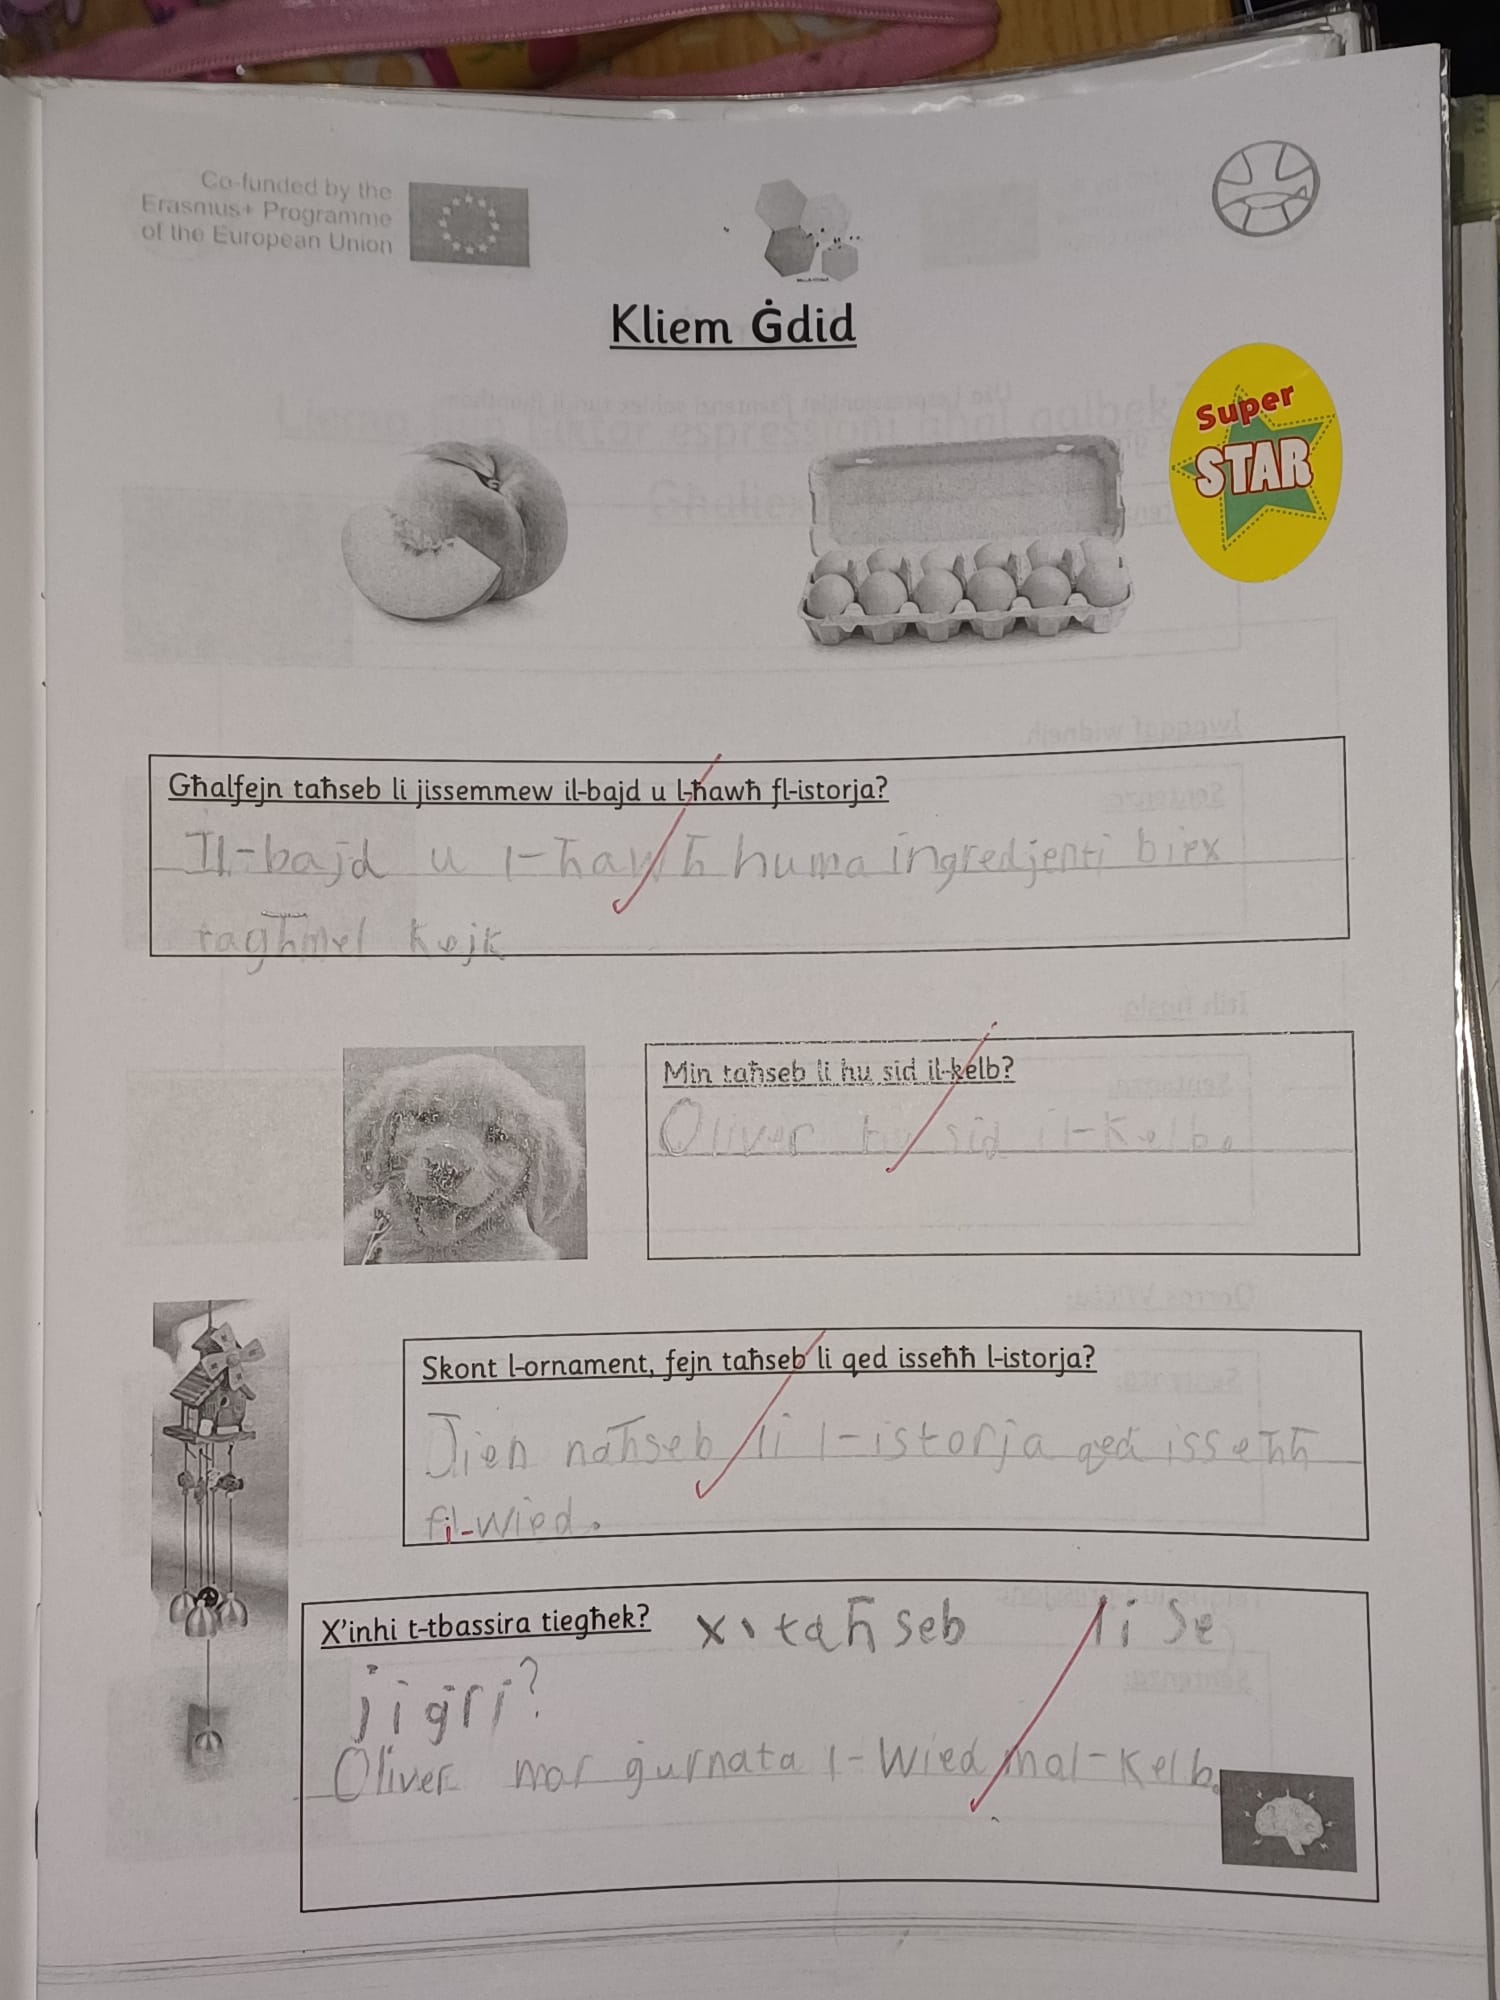 Co-funded by the
Erasmus+ Programme
of the European Union
Kliem Ġdid
Super
STAR
Għalfejn taħseb li jissemmew il-bajd u l-ħawħ fl-istorja?
Il-bajd u l-ħawħ huma ingredjenti biex
tagħmel kejk
Min taħseb li hu sid il-kelb?
Oliver hu sid il-kelb.
Skont l-ornament, fejn taħseb li qed isseħħ l-istorja?
Jien naħseb li l-istorja qed isseħħ
fil-wied.
X'inhi t-tbassira tiegħek? x'taħseb li se
jiġri?
Oliver mar ġurnata l-Wied mal-kelb.